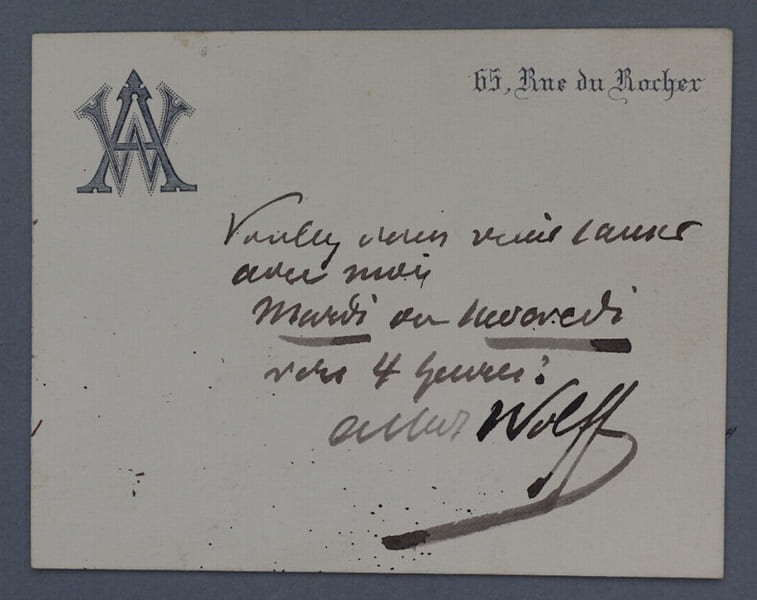 AW
65, Rue du Rocher
Voulez vous venir causer
avec moi
Mardi ou Mercredi
vers 4 heures?
Albert Wolff